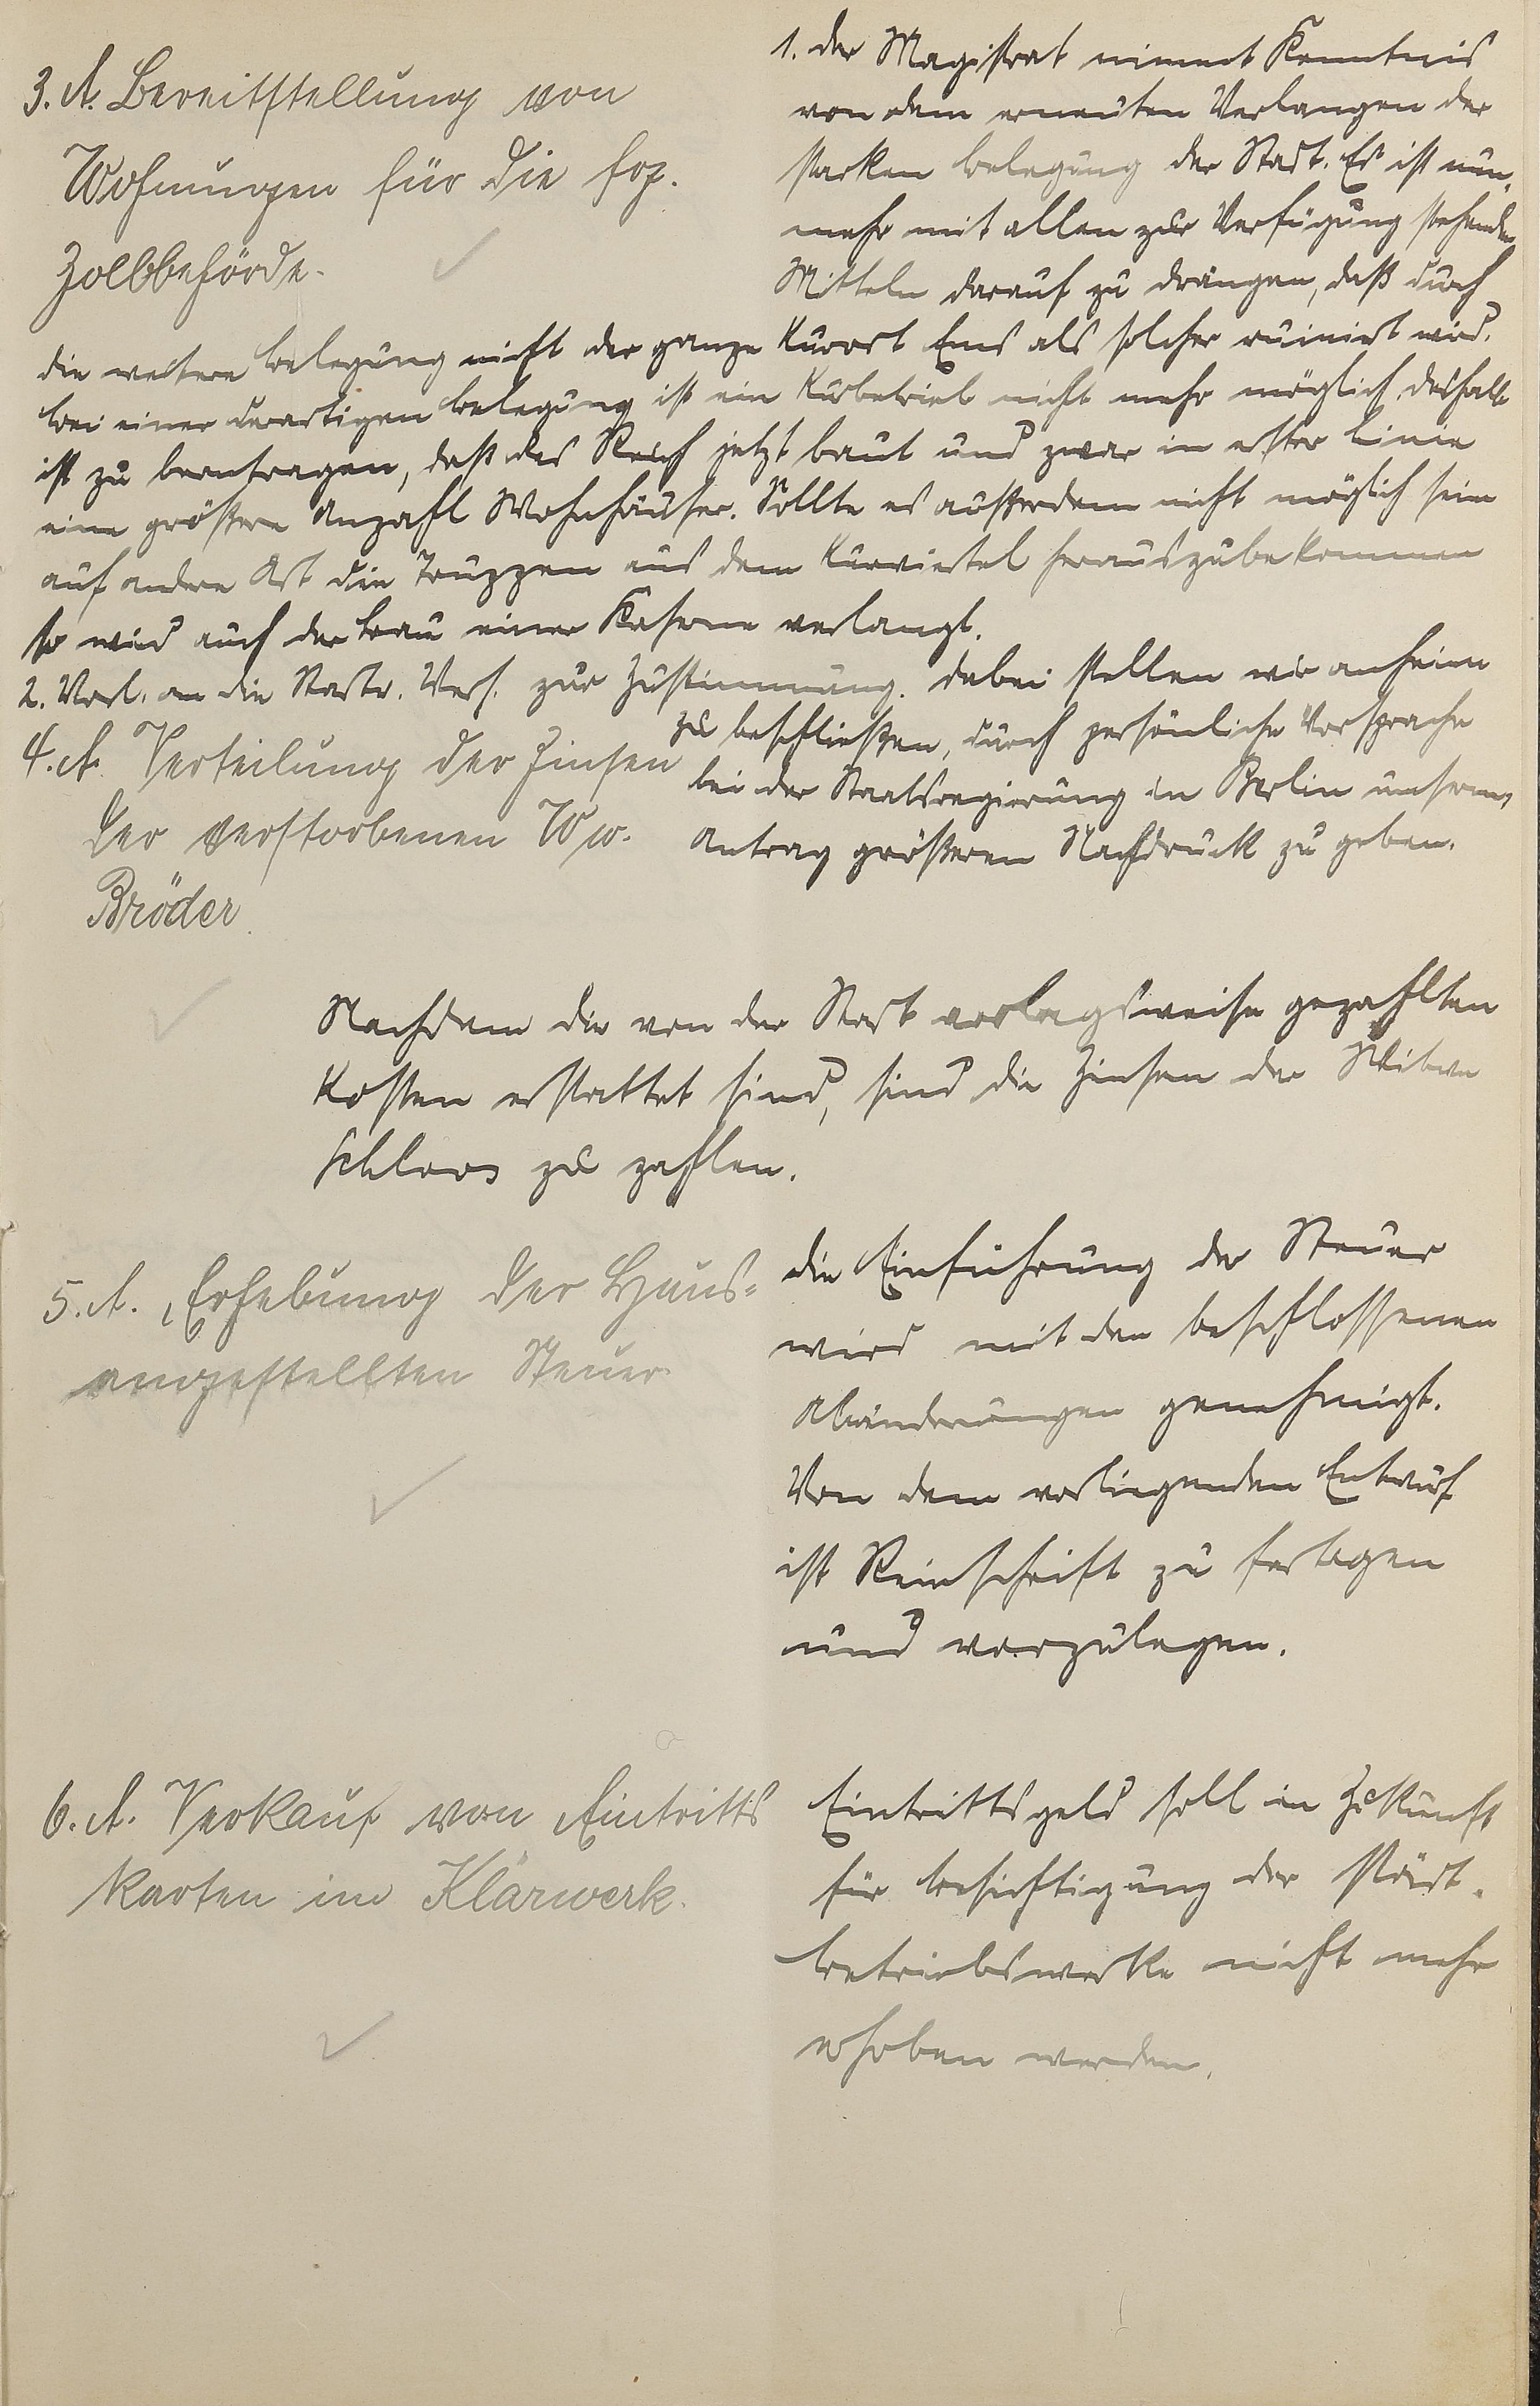 3. A. Bereitstellung von
Wohnungen für die frz.
Zollbehörde.
1. Der Magistrat nimmt Kenntnis
von dem erneuten Verlangen der
starken Belegung der Stadt. Es ist nun
mehr mit allen zur Verfügung stehenden
Mitteln darauf zu drängen, daß durch
die weitere Belegung nicht der ganze Kurort Ems als solcher ruiniert wird.
Bei einer derartigen Belegung ist ein Kurbetrieb nicht mehr möglich deshalb
ist zu beantragen, daß das Reich jetzt baut und zwar in erster Linie
eine größere Anzahl Wohnhäuser. Sollte es außerdem nicht möglich sein
auf andere Art die Truppen aus dem Kurviertel herauszubekommen
so wird auch der Bau einer Kaserne verlangt.
2. Vorl. an die Stadtv. Vers. zur Zustimmung. Dabei stellen wir anheim
zu beschließen, durch persönliche Vorsprache
bei der Staatsregierung in Berlin unserem
Antrag größeren Nachdruck zu geben.
4. A. Verteilung der Zinsen
der verstorbenen Ww.
Bröder.
Nachdem die von der Stadt vorlagsweise gezahlten
Kosten erstattet sind, sind die Zinsen der Witwe
Schloos zu zahlen.
5. A. Erhebung der Haus-
angestellten Steuer
Die Einführung der Steuer
wird mit den beschlossenen
Abänderungen genehmigt.
Von dem vorliegenden Entwurf
ist Reinschrift zu fertigen
und vorzulegen.
6. A. Verkauf von Eintritts
karten im Klärwerk.
Eintrittsgeld soll in Zukunft
für Besichtigung der städt.
Betriebswerke nicht mehr
erhoben werden.